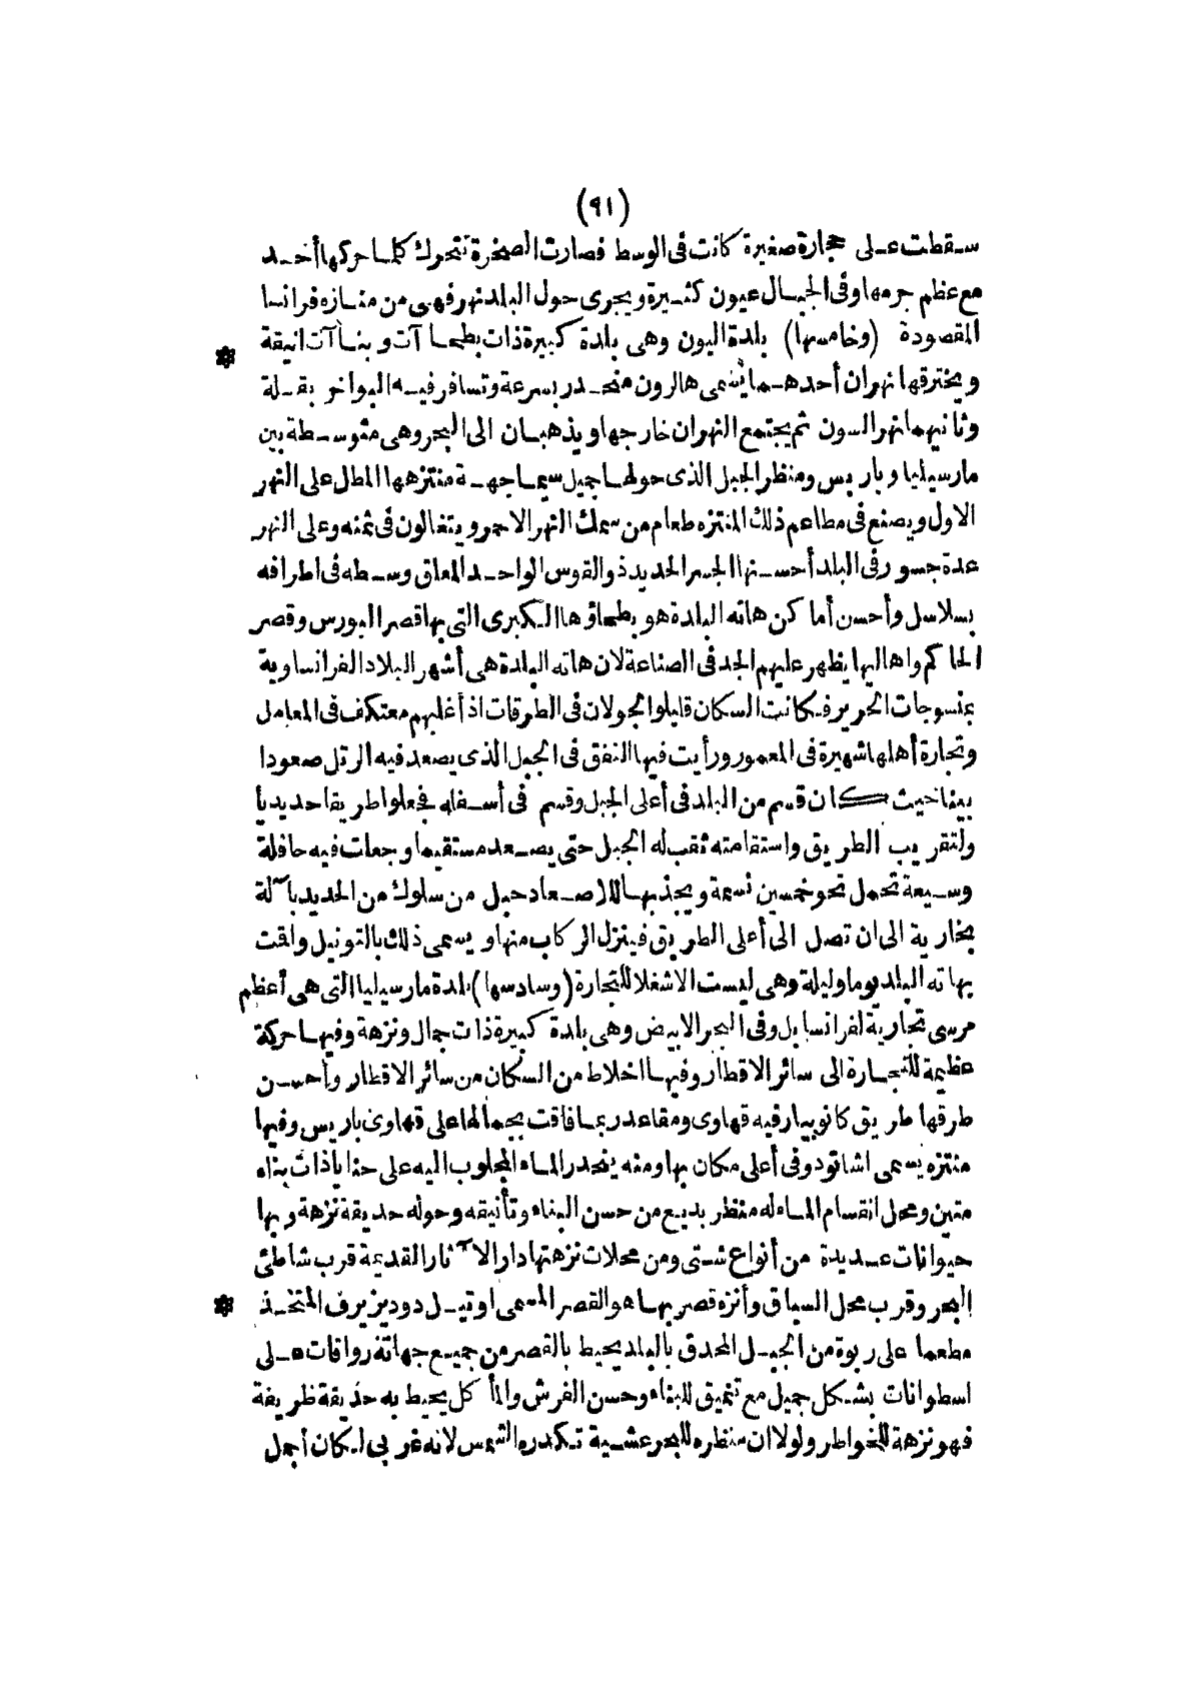 (٩١)
سقطت على حجارة صغيرة كانت فى الوسط فصارت الصخرة تتحرك كلما حركها أحد
مع عظم جرمها وفى الجبال عيون كثيرة ويجرى حول البلد نهر فهى من منازه فرانسا
المقصودة (وخامسها) بلدة اليون وهى بلدة كبيرة ذات بطحاآت وبناآت انيقة *
ويخترقها نهران أحدهما يسمى هالرون منحدر بسرعة وتسافر فيه البواخر بقلة
وثانيهما نهر السون ثم يجتمع النهران خارجها ويذهبان الى البحر وهى متوسطة بين
مارسيليا وباريس ومنظر الجبل الذى حولها جميل سيما جهة منتزهها المطل على النهر
الاول ويصنع فى مطاعم ذلك المنتزه طعام من سمك النهر الاحمر ويتغالون فى ثمنه وعلى النهر
عدة جسور فى البلد أحسنها الجسر الحديد ذو القوس الواحد المعلق وسطه فى اطرافه
بسلاسل وأحسن أماكن هاته البلدة هو بطحاؤها الكبرى التى بها قصر البورس وقصر
الحاكم واهاليها يظهر عليهم الجد فى الصناعة لان هاته البلدة هى أشهر البلاد الفرانساوية
بمنسوجات الحرير فكانت السكان قليلو الجولان فى الطرقات اذ أغلبهم معتكف فى المعامل
وتجارة أهلها شهيرة فى المعمور ورأيت فيها النفق فى الجبل الذى يصعد فيه الرتل صعودا
بينا حيث كان قسم من البلد فى أعلى الجبل وقسم فى أسفله فجعلوا طريقا حديديا
ولتقريب الطريق واستقامته ثقب له الجبل حتى يصعد مستقيما وجعلت فيه حافلة
وسيعة تحمل نحو خمسين نسمة ويجذبها للاصعاد حبل من سلوك من الحديد باآلة
بخارية الى ان تصل الى أعلى الطريق فينزل الركاب منها ويسمى ذلك بالتونيل واقت
بهاته البلد يوما وليلة وهى ليست الا شغلا للتجارة (وسادسها) بلدة مارسيليا التى هى أعظم
مرسى تجارية لفرانسا بل وفى البحر الابيض وهى بلدة كبيرة ذات جمال ونزهة وفيها حركة
عظيمة للتجارة الى سائر الاقطار وفيها اخلاط من السكان من سائر الاقطار وأحسن
طرقها طريق كانوبيار فيه قهاوى ومقاعد ربما فاقت بجمالها على قهاوى باريس وفيها
منتزه يسمى اشاتودو فى أعلى مكان بها ومنه ينحدر الماء المجلوب اليه على حنايا ذات بناء
متين ومحل انقسام الماء له منظر بديع من حسن البناء وتأنيقه وحوله حديقة نزهة وبها
حيوانات عديدة من أنواع شتى ومن محلات نزهتها دار الاآثار القديمة قرب شاطئ
البحر وقرب محل السباق وأنزه قصر بها هو القصر المسمى اوتيل دو ديزيرف المتخذ *
مطعما على ربوة من الجبل المحدق بالبلد يحيط بالقصر من جميع جهاته رواقات على
اسطوانات بشكل جميل مع تنميق للبناء وحسن الفرش والمأكل يحيط به حديقة ظريفة
فهو نزهة للخواطر ولولا ان منظره للبحر عشية تكدره الشمس لانه غربى لكان أجمل